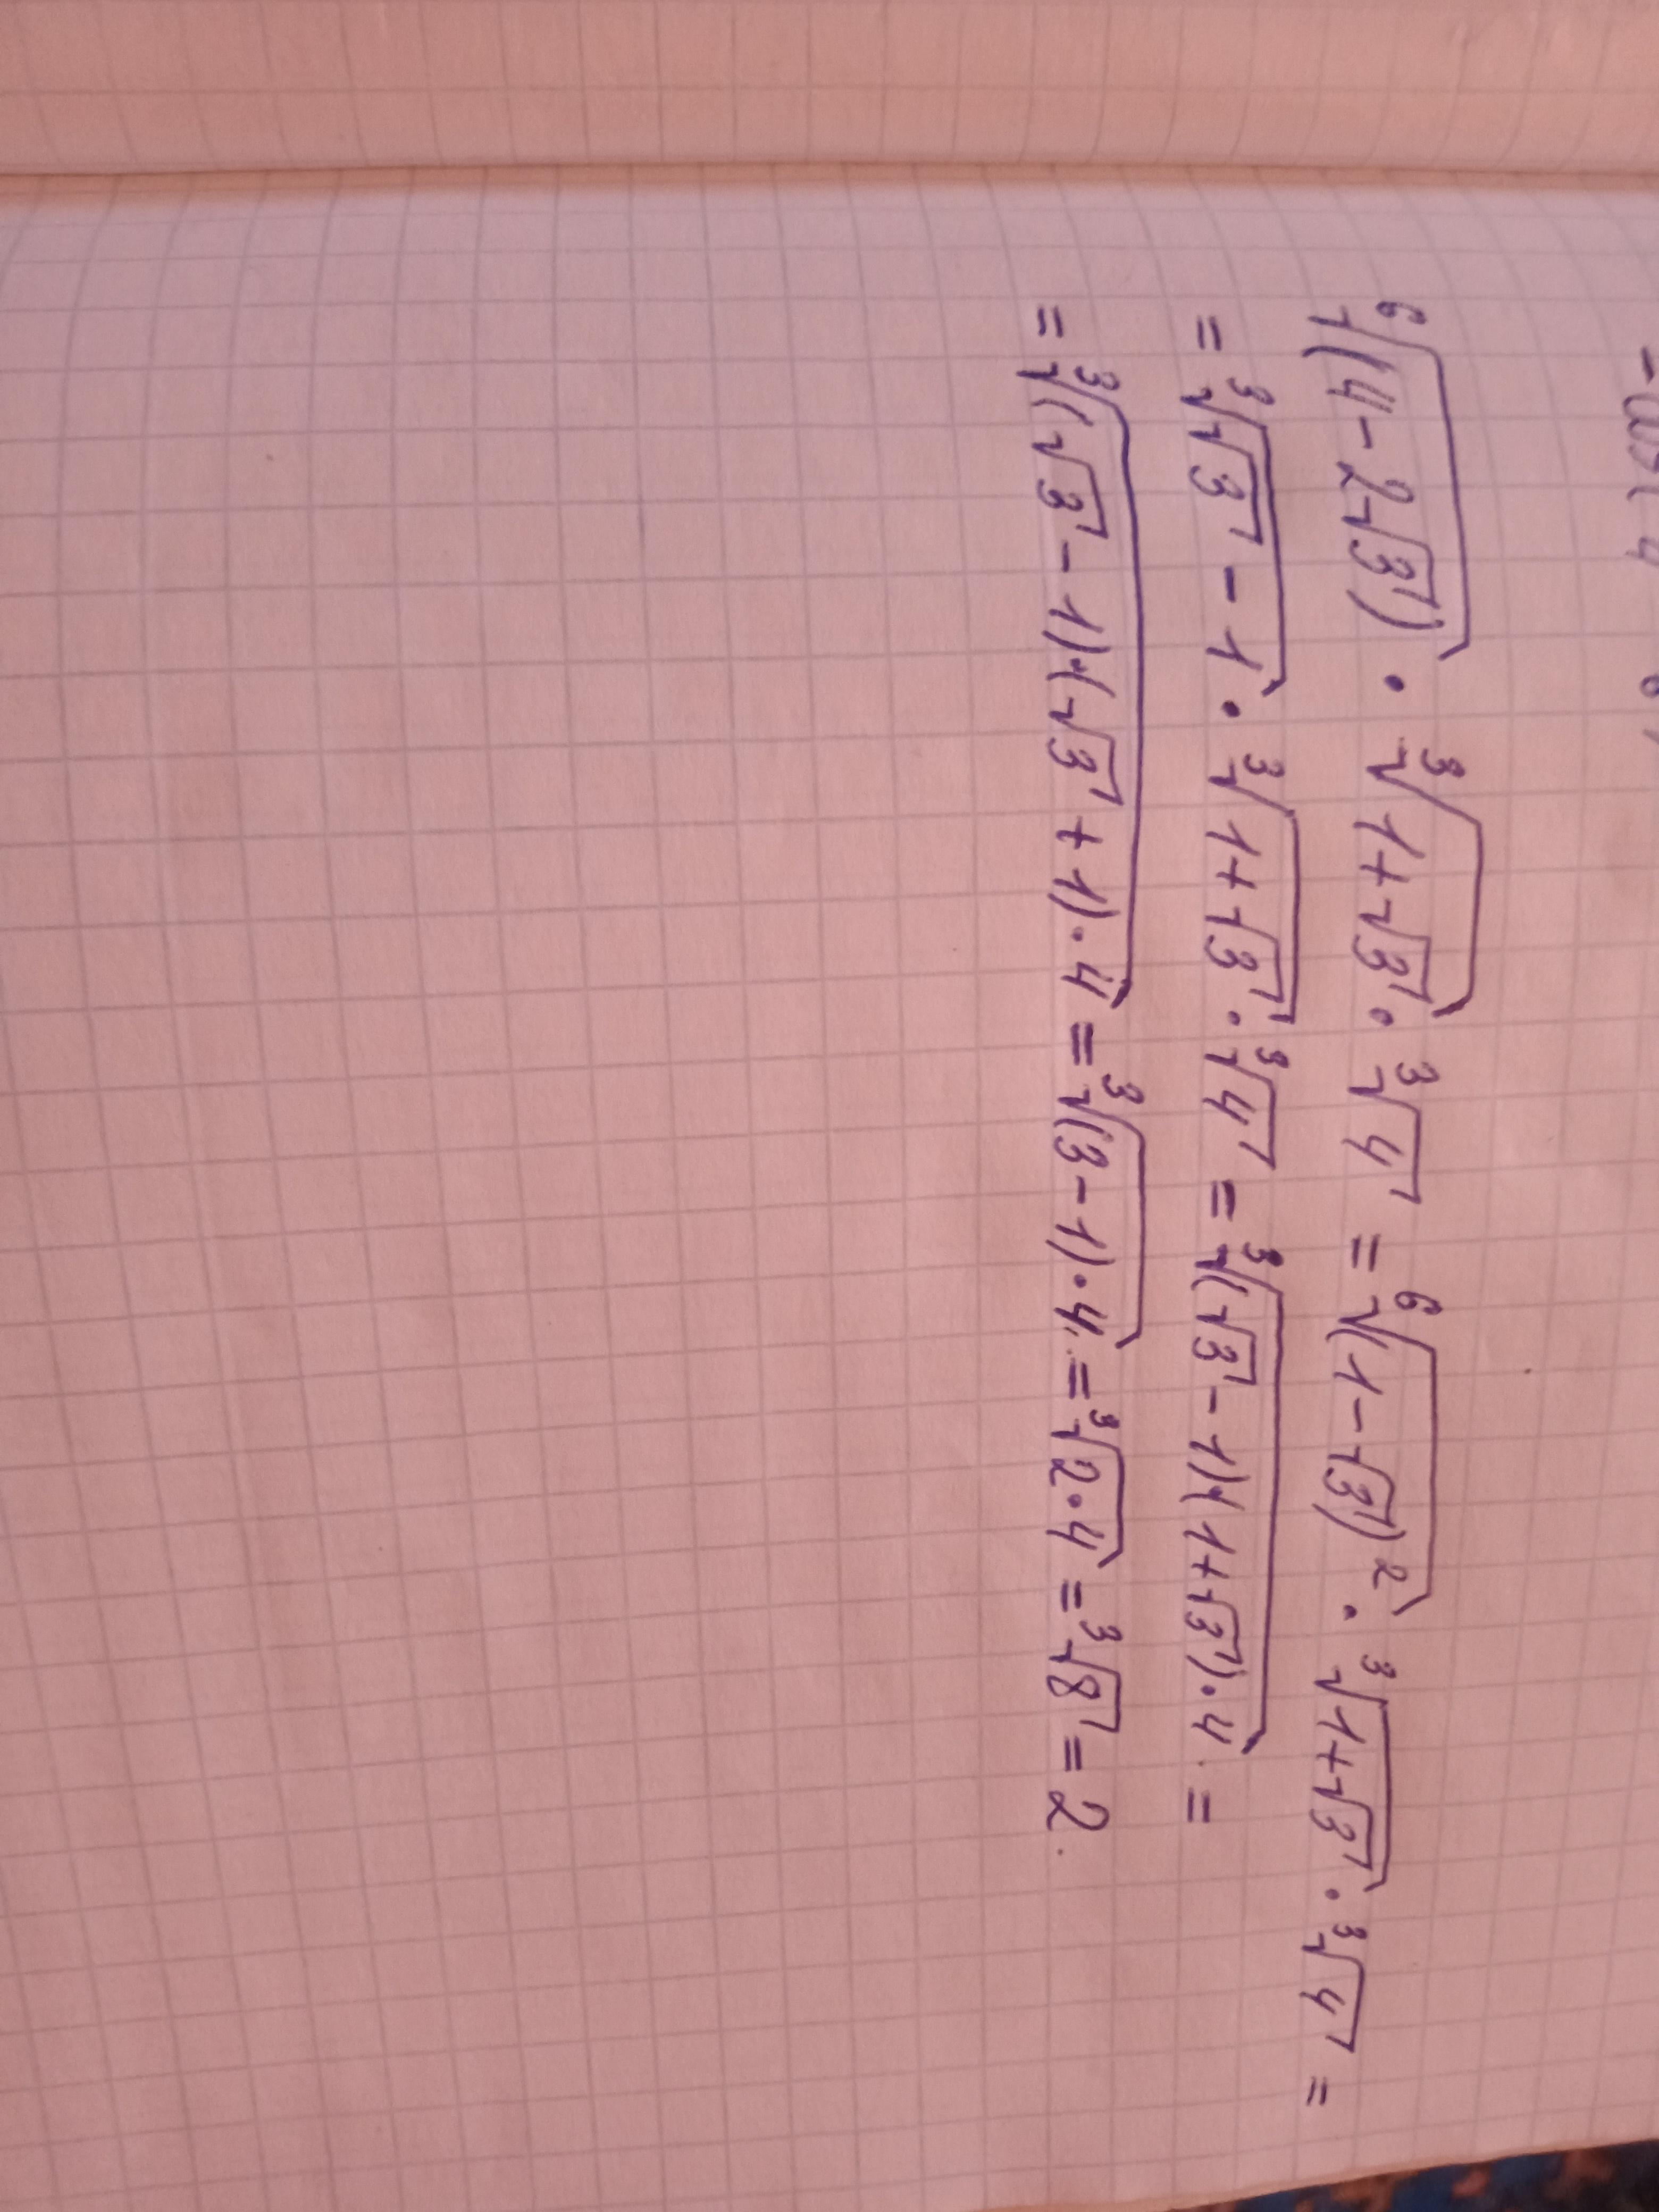 ⁶√(4 - 2√3) · ³√(1+√3) · ³√4 = ⁶√(1-√3)² · ³√(1+√3) · ³√4 =
= ³√(√3 - 1) · ³√(1+√3) · ³√4 = ³√((√3 - 1)·(1+√3)·4) =
= ³√((√3 - 1)·(√3 + 1)·4) = ³√((3-1)·4) = ³√(2·4) = ³√8 = 2.